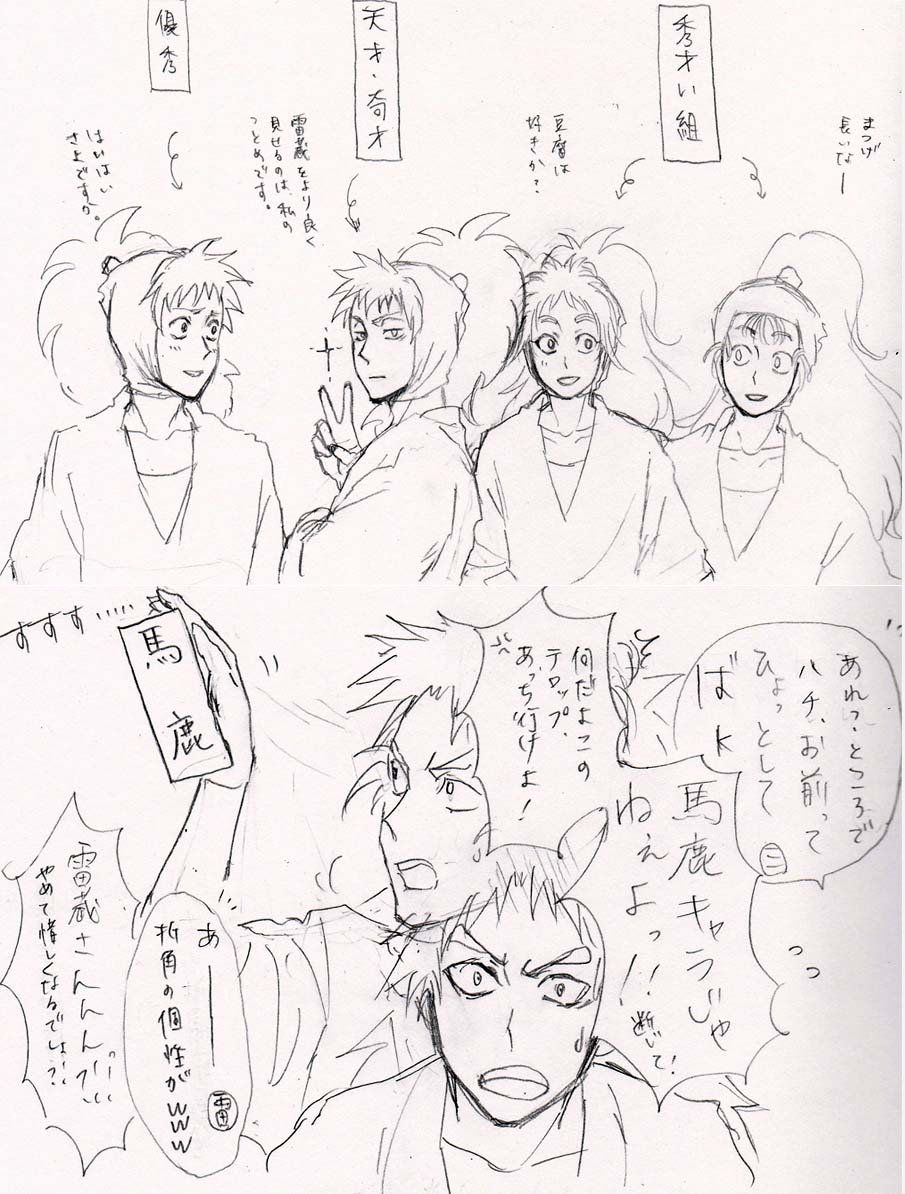 まつげ
長いなー
秀才い組
豆腐は
好きか?
天才・奇才
雷蔵をより良く
見せるのは、私の
つとめです。
優秀
はいはい
さよですか。
あれっ・ところで
ハチ、お前って
ひょっとして
ばk
三
っっ
馬鹿キャラじゃ
ねぇよっ!!
断じて!
何だよこの
テロップ、
あっち行けよ!
馬鹿
すすす……
あ――
折角の個性がwww
雷
雷蔵さんんん!!
やめて惜しくなるでしょ!?